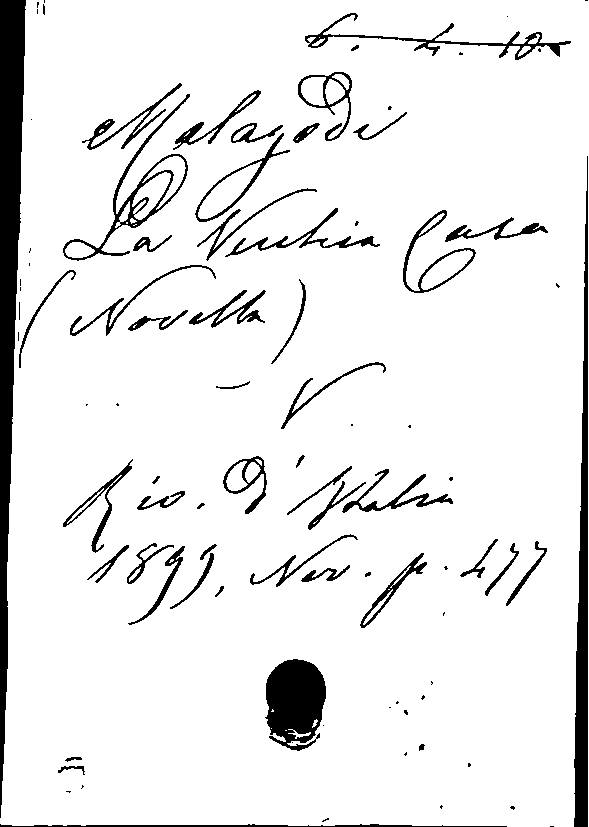 6. 4. 10.
Malagodi
La Vecchia Casa
(Novella)
– V
Riv. d'Italia
1899, Nov. p. 477